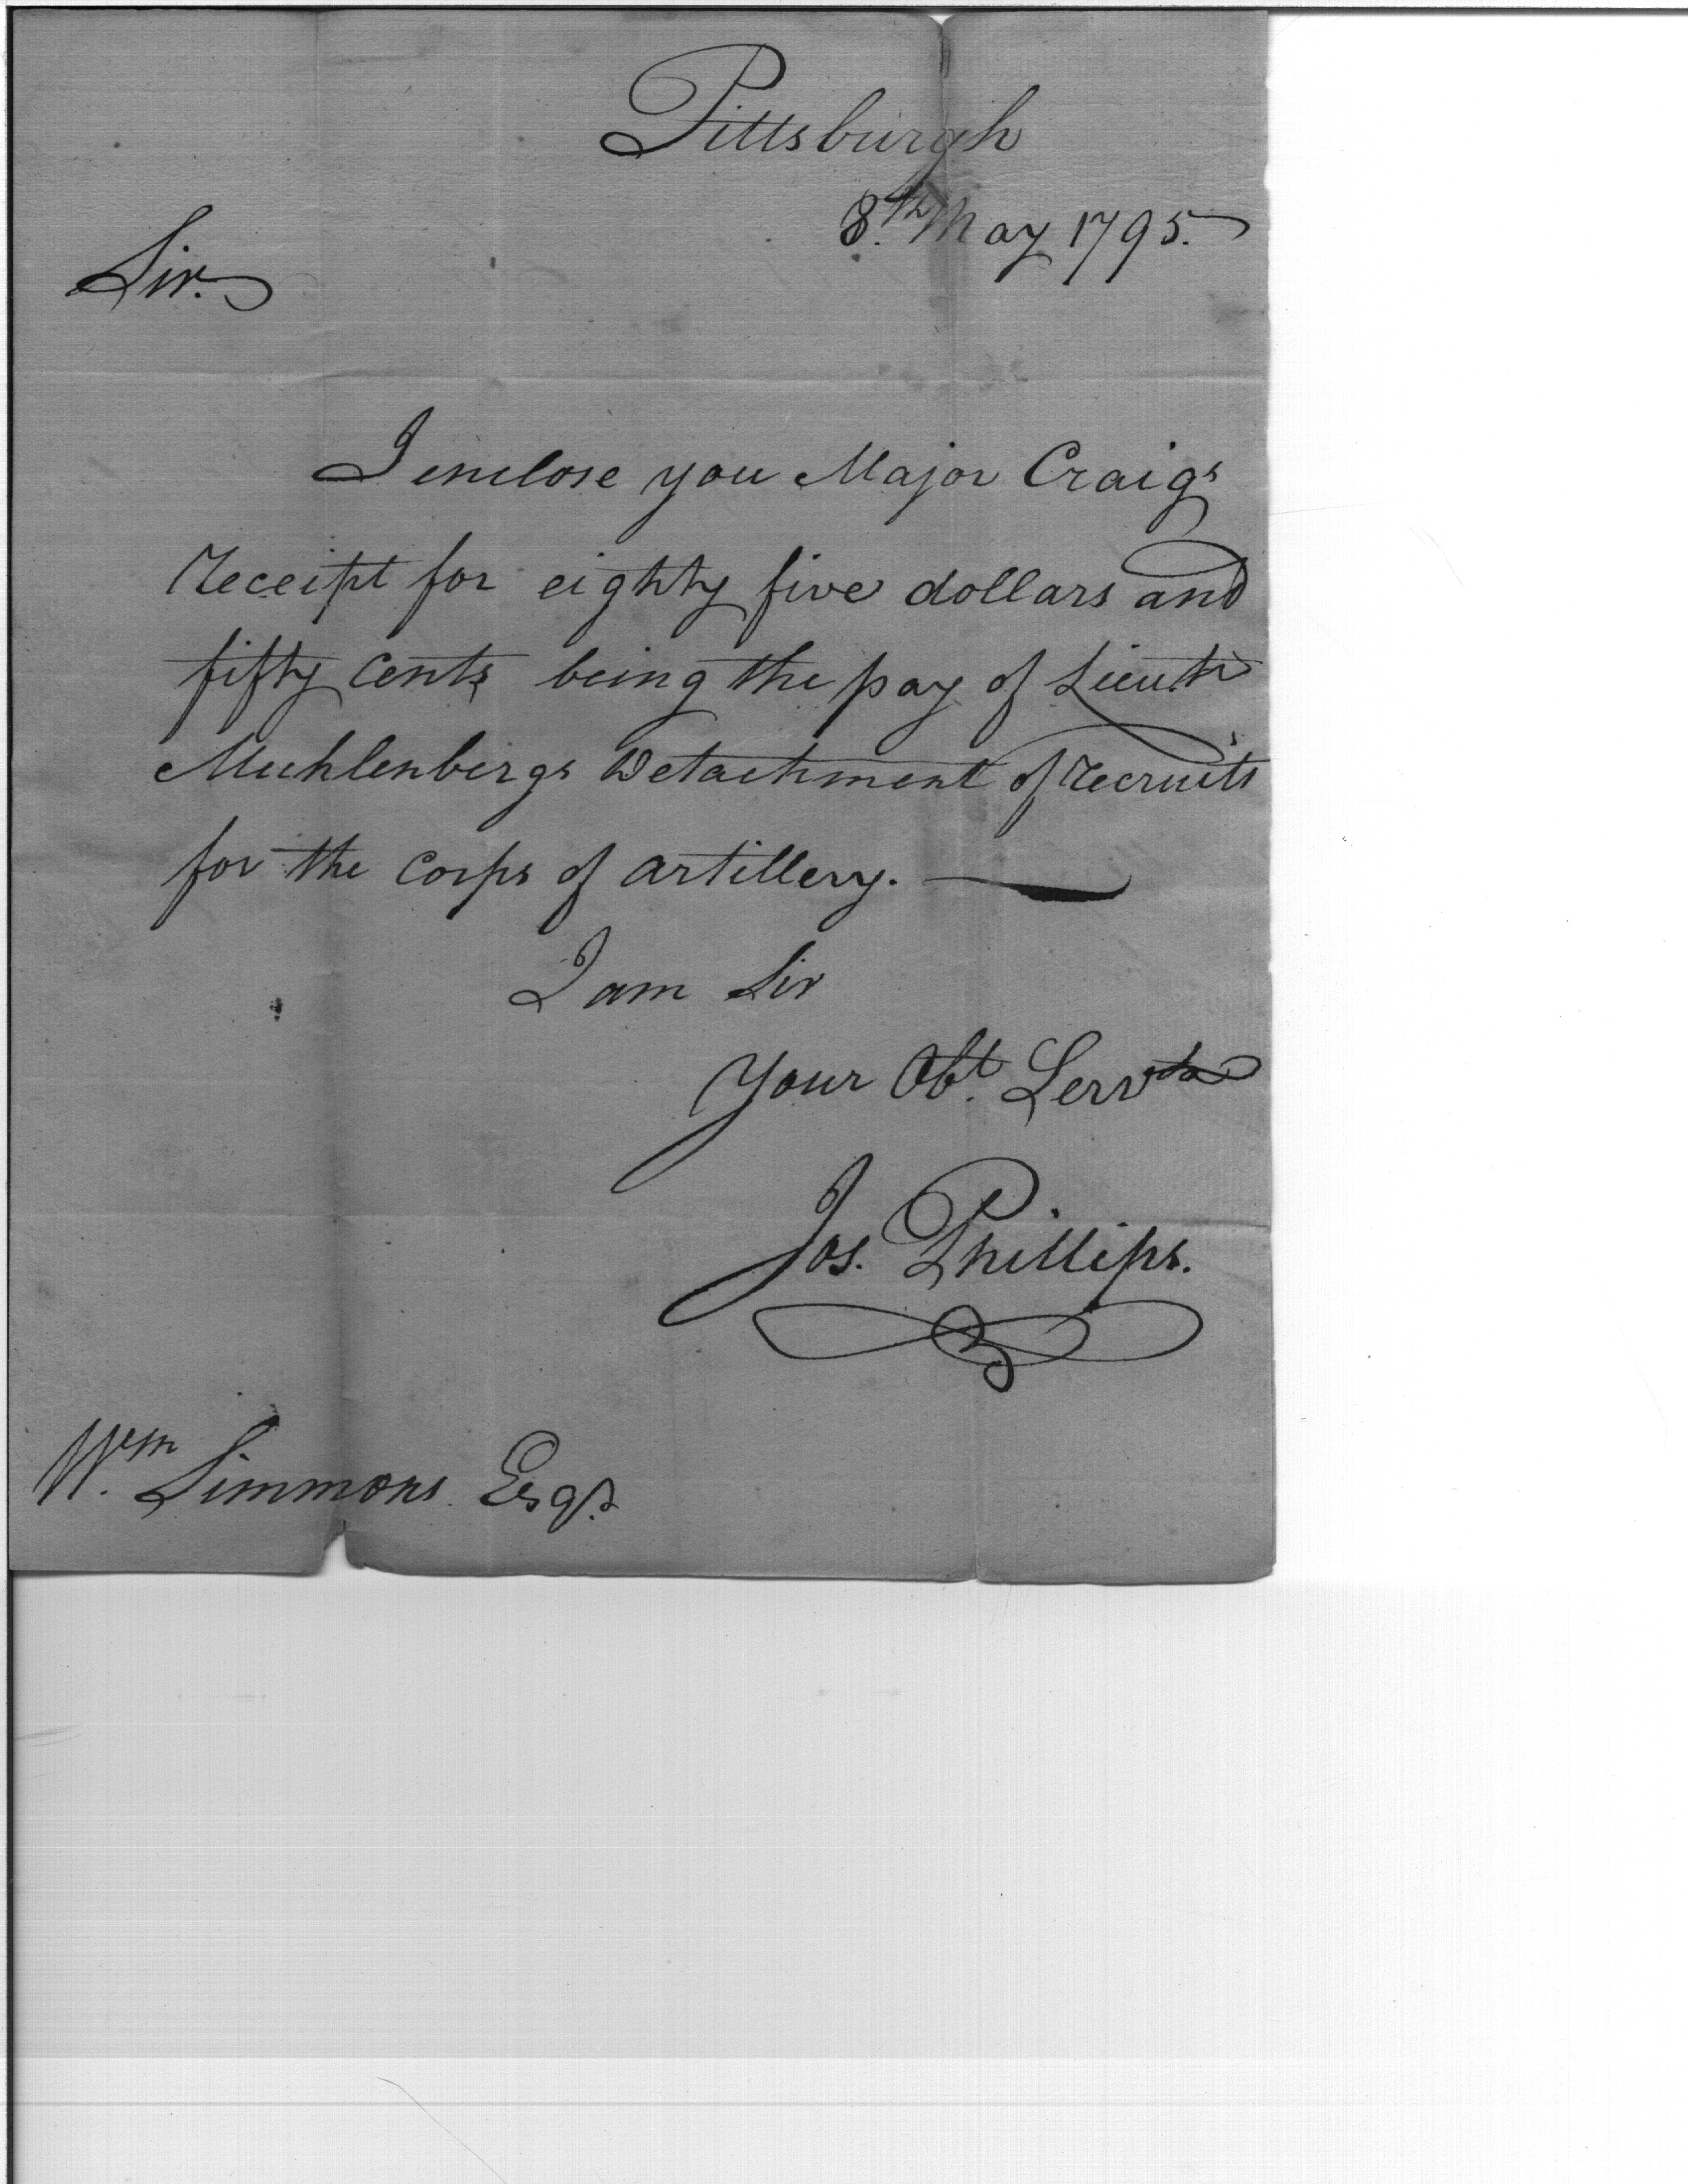 Pittsburgh
8.th May 1795.
Sir.
I enclose you Major Craigs
receipt for eighty five dollars and
fifty Cents being the pay of Lieut.
Muhlenbergs Detachment of recruits
for the Corps of Artillery.
I am Sir
Your Obt. Servt.
Jos. Phillips.
Wm. Simmons Esqr.